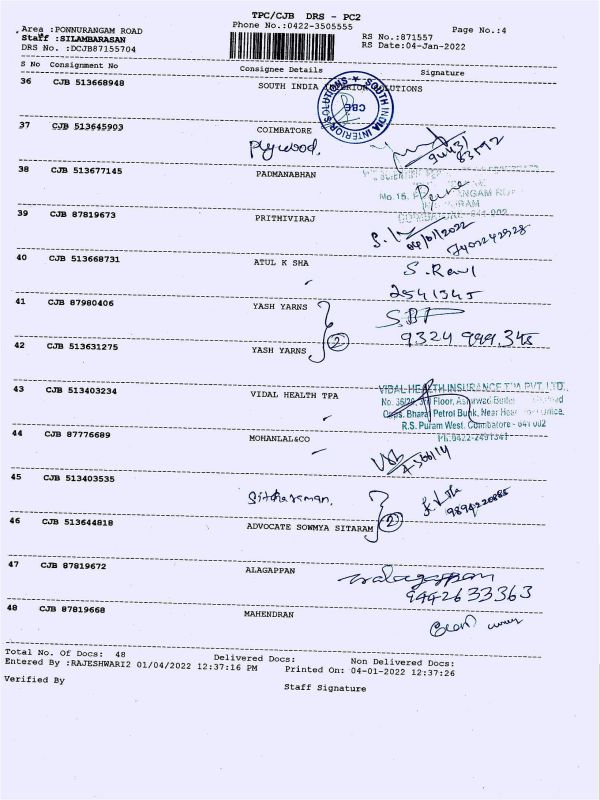 TPC/CJB DRS - PC2
Area :PONNURANGAM ROAD
Phone No.:0422-3505555
Page No.:4
Staff :SILAMBARASAN
RS No.:871557
DRS No. :DCJB87155704
RS Date:04-Jan-2022
S No Consignment No Consignee Details Signature
36 CJB 513668948 SOUTH INDIA INTERIOR SOLUTIONS
SOUTH INDIA INTERIOR SOLUTIONS
CBE
37 CJB 513645903 COIMBATORE
Plywood.
94431
83592
38 CJB 513677145 PADMANABHAN
No.15,
COIMBATORE - 641 002
39 CJB 87819673 PRITHIVIRAJ
04/01/2022
40 CJB 513668731 ATUL K SHA
S. Ravi
2541345
41 CJB 87980406 YASH YARNS
2
9324 999 345
42 CJB 513631275 YASH YARNS
43 CJB 513403234 VIDAL HEALTH TPA
VIDAL HEALTH INSURANCE TPA PVT LTD.
Floor,
Opps. Bharat Petrol Bunk, Near Head Post Office.
R.S. Puram West. Coimbatore - 641 002
Ph.0422-2491341
44 CJB 87776689 MOHANLAL&CO
45 CJB 513403535
Sitharaman.
9894220885
2
46 CJB 513644818 ADVOCATE SOWMYA SITARAM
47 CJB 87819672 ALAGAPPAN
Walagappan
9442633363
48 CJB 87819668 MAHENDRAN
Total No. Of Docs: 48 Delivered Docs: Non Delivered Docs:
Entered By :RAJESHWARI2 01/04/2022 12:37:16 PM Printed On: 04-01-2022 12:37:26
Verified By
Staff Signature